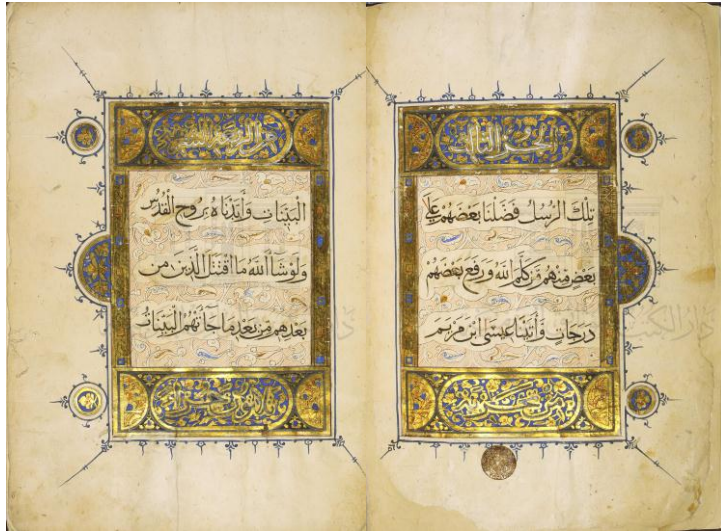 الجزء الثالث
تِلْكَ الرُّسُلُ فَضَّلْنَا بَعْضَهُمْ عَلَى
بَعْضٍ مِنْهُمْ مَنْ كَلَّمَ اللَّهُ وَرَفَعَ بَعْضَهُمْ
دَرَجَاتٍ وَآتَيْنَا عِيسَى ابْنَ مَرْيَمَ
الْبَيِّنَاتِ وَأَيَّدْنَاهُ بِرُوحِ الْقُدُسِ
وَلَوْ شَاءَ اللَّهُ مَا اقْتَتَلَ الَّذِينَ مِنْ
بَعْدِهِمْ مِنْ بَعْدِ مَا جَاءَتْهُمُ الْبَيِّنَاتُ